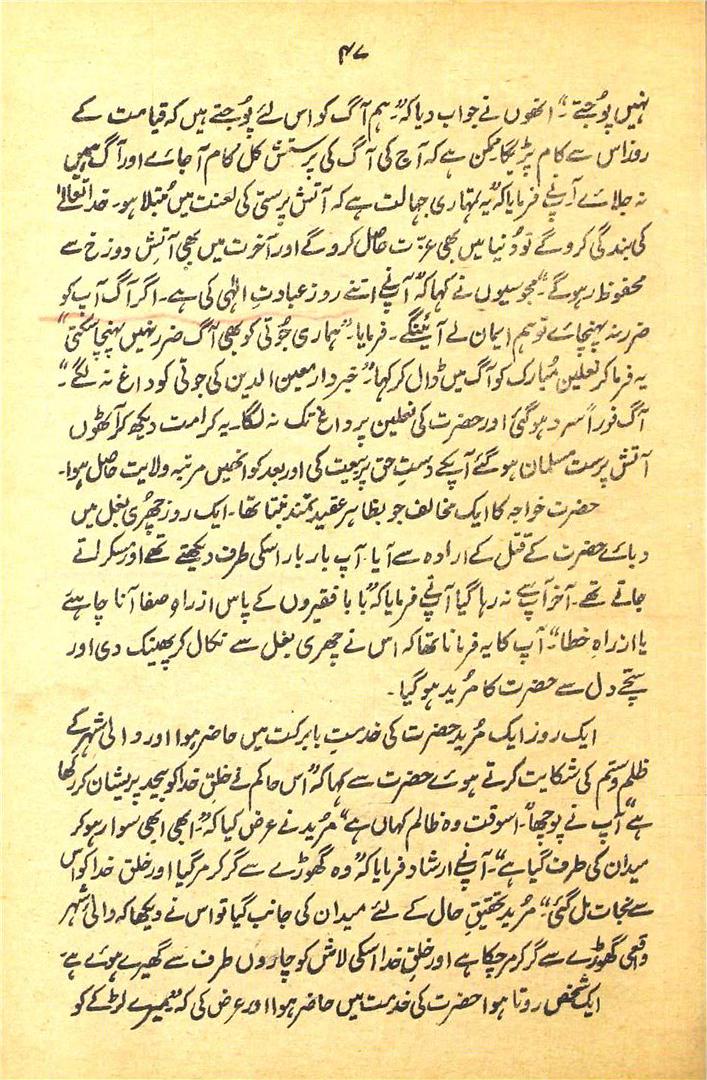 ۴۷
نہیں پوُجتے۔" انھوں نے جواب دیا کہ "ہم آگ کو اس لئے پوُجتے ہیں کہ قیامت کے
روز اس سے کام پڑیگا ممکن ہے کہ آج کی آگ کی پرستش کل کام آ جائے اور آگ ہمیں
نہ جلائے آپنے فرمایا کہ "یہ تمہاری جہالت ہے کہ آتش پرستی کی لعنت میں مُبتلا ہو۔ خدا تعالےٰ
کی بندگی کروگے تو دُنیا میں بھی عزّت حاصل کروگے اور آخرت میں بھی آتشِ دوزخ سے
محفوظ رہوگے۔" مجوسیوں نے کہا کہ "آپنے اتنے روز عبادتِ الٰہی کی ہے۔ اگر آگ آپ کو
ضرر نہ پہنچائے تو ہم ایمان لے آئینگے۔ فرمایا۔ "ہماری جوُتی کو بھی آگ ضرر نہیں پہنچا سکتی"
یہ فرما کر نعلین مُبارک کو آگ میں ڈال کر کہا۔ "خبردار معین الدین کی جوتی کو داغ نہ لگے"۔
آگ فوراً سرد ہوگئی اور حضرت کی نعلین پر داغ تک نہ لگا۔ یہ کرامت دیکھ کر آٹھوں
آتش پرست مسلمان ہو گئے آپکے دستِ حق پر بیعت کی اور بعد کو انھیں مرتبہ ولایت حاصل ہوا۔
حضرت خواجہ کا ایک مخالف جو بظاہر عقیدتمند بنتا تھا۔ ایک روز چھُری بغل میں
دبائے حضرت کے قتل کے ارادہ سے آیا۔ آپ بار بار اسکی طرف دیکھتے تھے اور مسکراتے
جاتے تھے۔ آخر آپ سے نہ رہا گیا آپنے فرمایا کہ "بابا فقیروں کے پاس از راہِ صفا آنا چاہیئے
یا از راہِ خطا"۔ آپ کا یہ فرمانا تھا کہ اس نے چھری بغل سے نکال کر پھینک دی اور
سچّے دل سے حضرت کا مُرید ہو گیا۔
ایک روز ایک مُرید حضرت کی خدمتِ بابرکت میں حاضر ہوا اور والیٔ شہر کے
ظلم و ستم کی شکایت کرتے ہوئے حضرت سے کہا کہ "اس حاکم نے خلقِ خدا کو بیحد پریشان کر رکھا
ہے" آپ نے پوچھا "اسوقت وہ ظالم کہاں ہے" مُرید نے عرض کیا کہ "ابھی ابھی سوار ہو کر
میدان کی طرف گیا ہے"۔ آپنے ارشاد فرمایا کہ "وہ گھوڑے سے گر کر مرگیا اور خلق خدا کو اس
سے نجات مل گئی"۔ مُرید تحقیقِ حال کے لئے میدان کی جانب گیا تو اس نے دیکھا کہ والیٔ شہر
واقعی گھوڑے سے گر کر مر چکا ہے اور خلقِ خدا اسکی لاش کو چاروں طرف سے گھیرے ہوئے ہے۔
ایک شخص روتا ہوا حضرت کی خدمت میں حاضر ہوا اور عرض کی کہ "میرے لڑکے کو